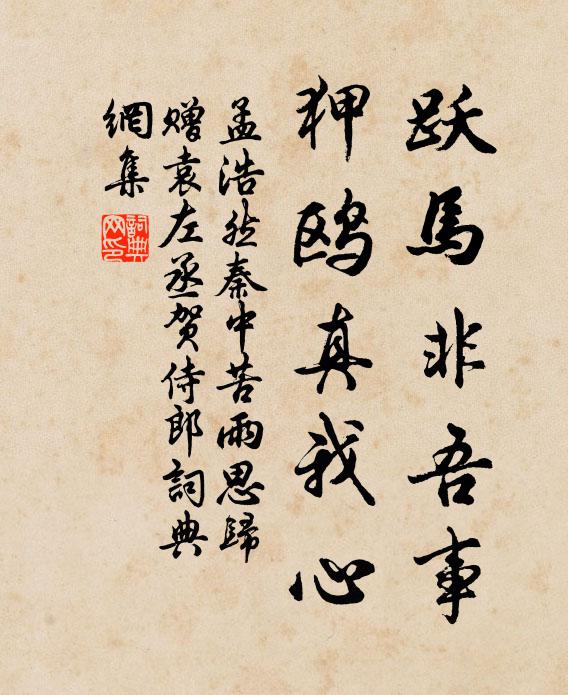 跃馬非吾事
狎鸥真我心
孟浩然秦中苦雨思歸
赠袁左丞贺侍郎詞典
網集
詞典
网印